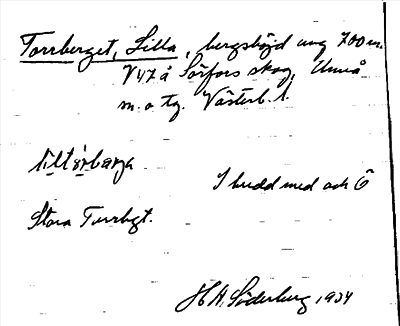 Torrberget, Lilla, bergshöjd ung 700 m.
V 47 å Sörfors skog, Umeå
m. o. tg. Västerb. l.
lìlt
I bredd med och Ö
Stora Torrbgt.
H A. Söderberg 1934